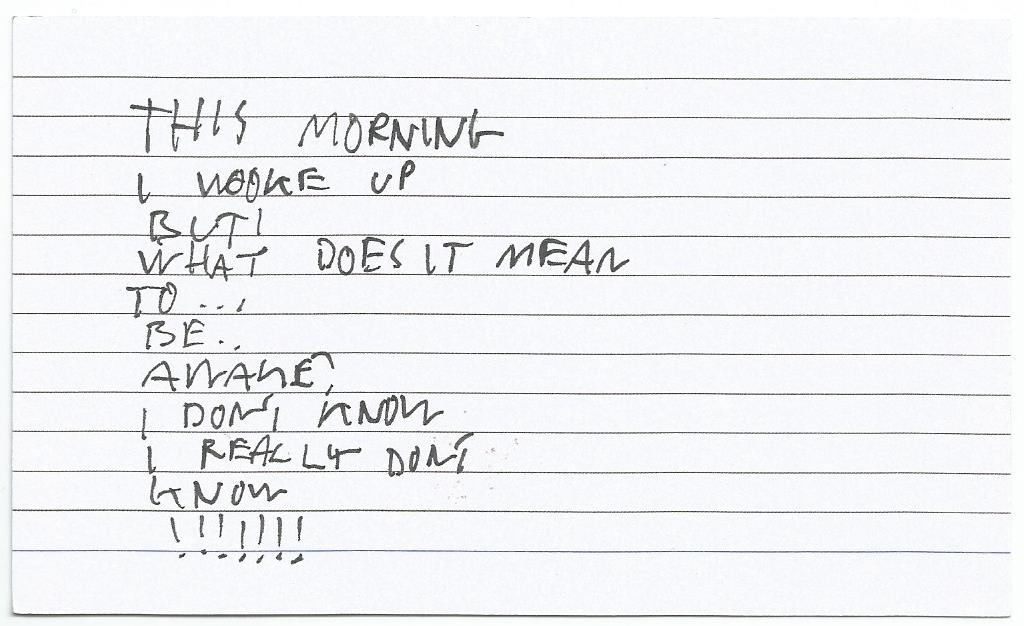 THIS MORNING
I WOOKE UP
BUT!
WHAT DOES IT MEAN
TO...
BE..
AWAKE?
I DON'T KNOW
I REALLY DON'T
KNOW
!!!!!!!